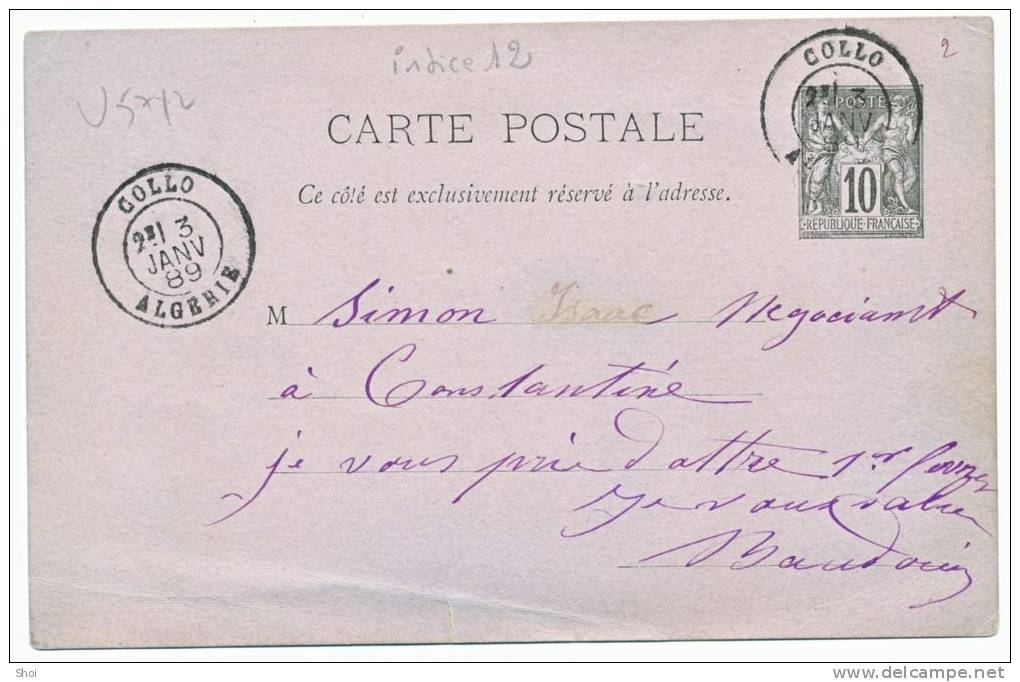 indice 12
2
CARTE POSTALE
Ce côté est exclusivement réservé à l'adresse.
COLLO
3
JANV
POSTE
10
REPUBLIQUE FRANÇAISE
COLLO
3
JANV
89
ALGERIE
M Simon Isaac Negociant
à Constantine
je vous prie d attre 1er
Je vous salue
Baudouin
Shoi
www.delcampe.net